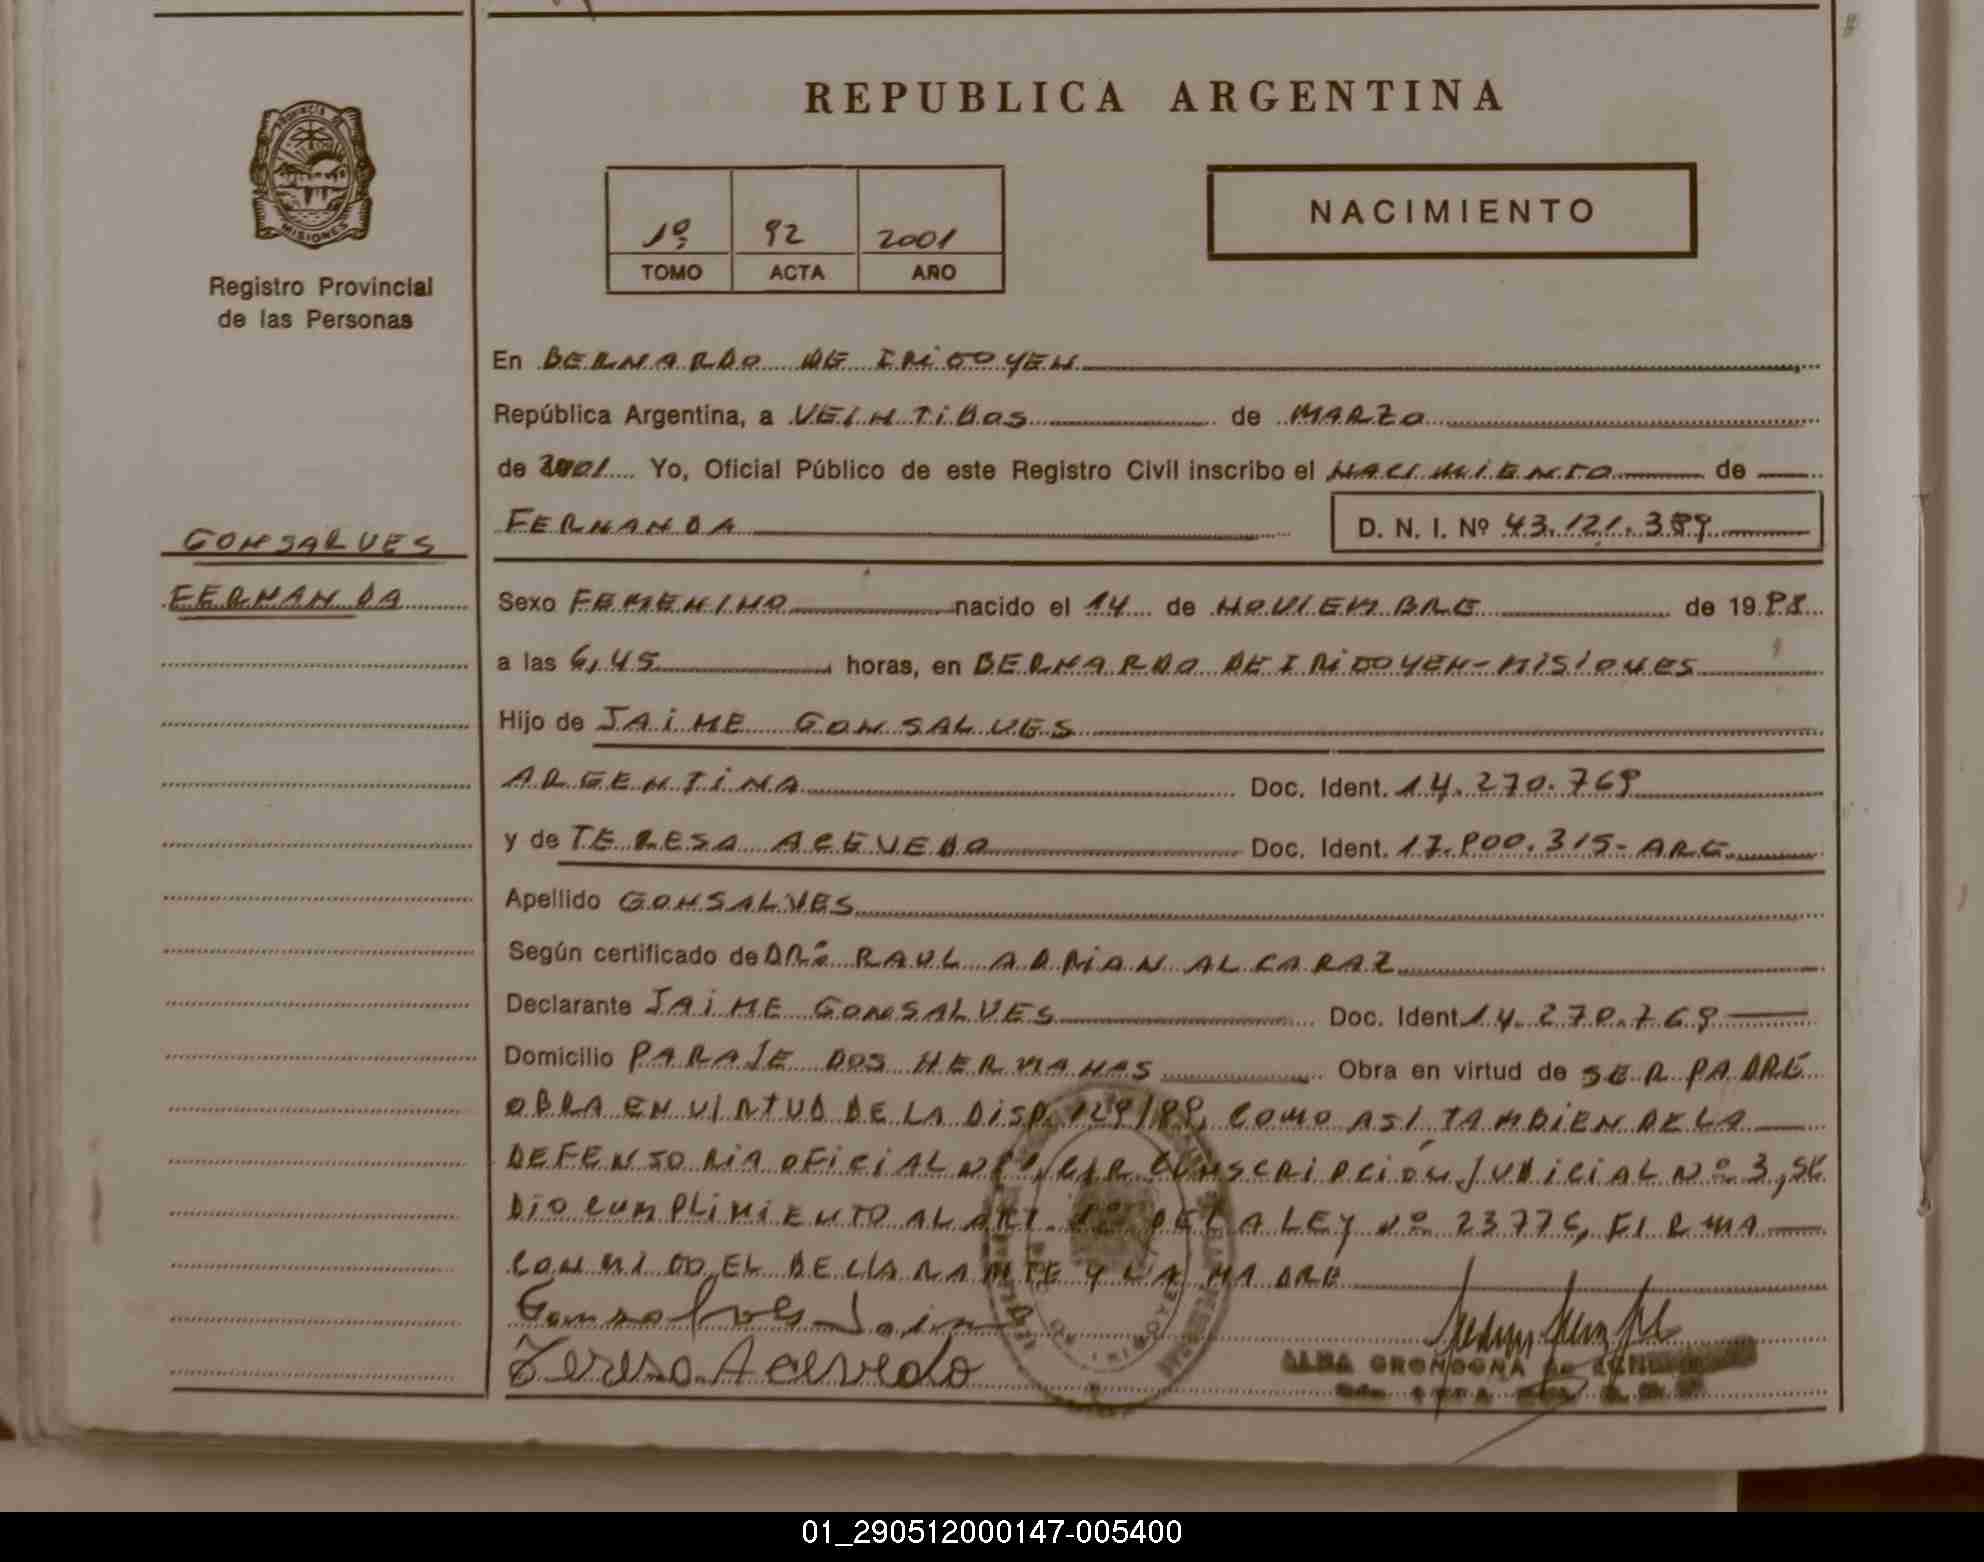 REPUBLICA ARGENTINA
PROVINCIA DE
MISIONES
Registro Provincial
de las Personas
1º 92 2001
TOMO ACTA AÑO
NACIMIENTO
En BERNARDO DE IRIGOYEN
República Argentina, a VEINTIDOS de MARZO
de 2001 Yo, Oficial Público de este Registro Civil inscribo el NACIMIENTO de
FERNANDA D. N. I. Nº 43.121.389
GONSALVES
FERNANDA
Sexo FEMENINO nacido el 14 de NOVIEMBRE de 19 98
a las 6,45 horas, en BERNARDO DE IRIGOYEN-MISIONES
Hijo de JAIME GONSALVES
ARGENTINA Doc. Ident. 14.270.769
y de TERESA ACEVEDO Doc. Ident. 17.900.315- ARG.
Apellido GONSALVES
Según certificado de DR: RAUL ADRIAN ALCARAZ
Declarante JAIME GONSALVES Doc. Ident 14.270.769
Domicilio PARAJE DOS HERMANAS Obra en virtud de SER PADRE
OBRA EN VIRTUD DE LA DISP. 129/99, COMO ASI TAMBIEN DE LA
DEFENSORIA OFICIAL Nº CIRCUNSCRIPCIÓN JUDICIAL Nº 3, SE
DIO CUMPLIMIENTO AL ART. DE LA LEY Nº 23776, FIRMA
CONMIGO EL DECLARANTE Y LA MADRE
Gonsalves Jaime
Teresa Acevedo
ALBA
01_290512000147-005400